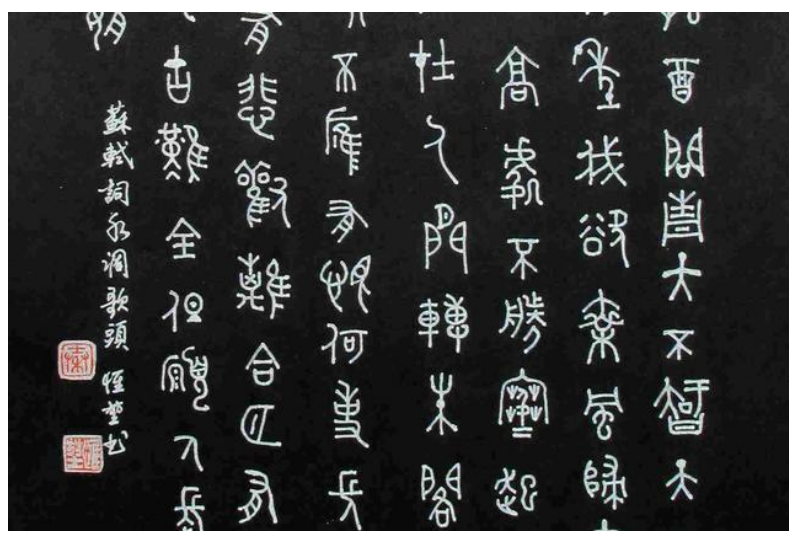 酒問青天不知天
年我欲乘風歸
高處不勝寒起
在人間轉朱閣
不應有恨何事長
有悲歡離合月有
古難全但願人長
蘇軾詞水調歌頭